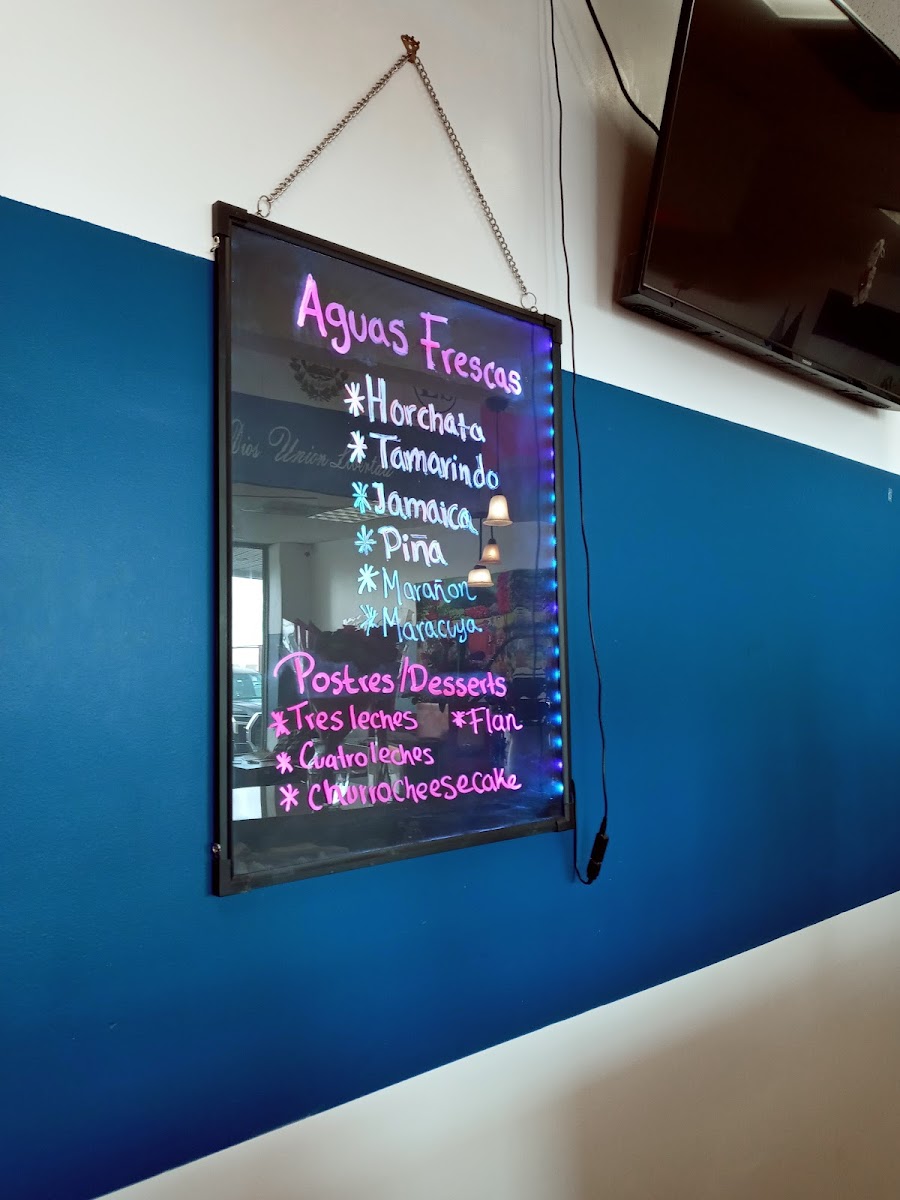 Aguas Frescas
*Horchata
*Tamarindo
*Jamaica
*Piña
*Marañon
*Maracuya
Postres/Desserts
*Tres leches *Flan
*Cuatro leches
*Churro cheesecake
Dios Union Libertad